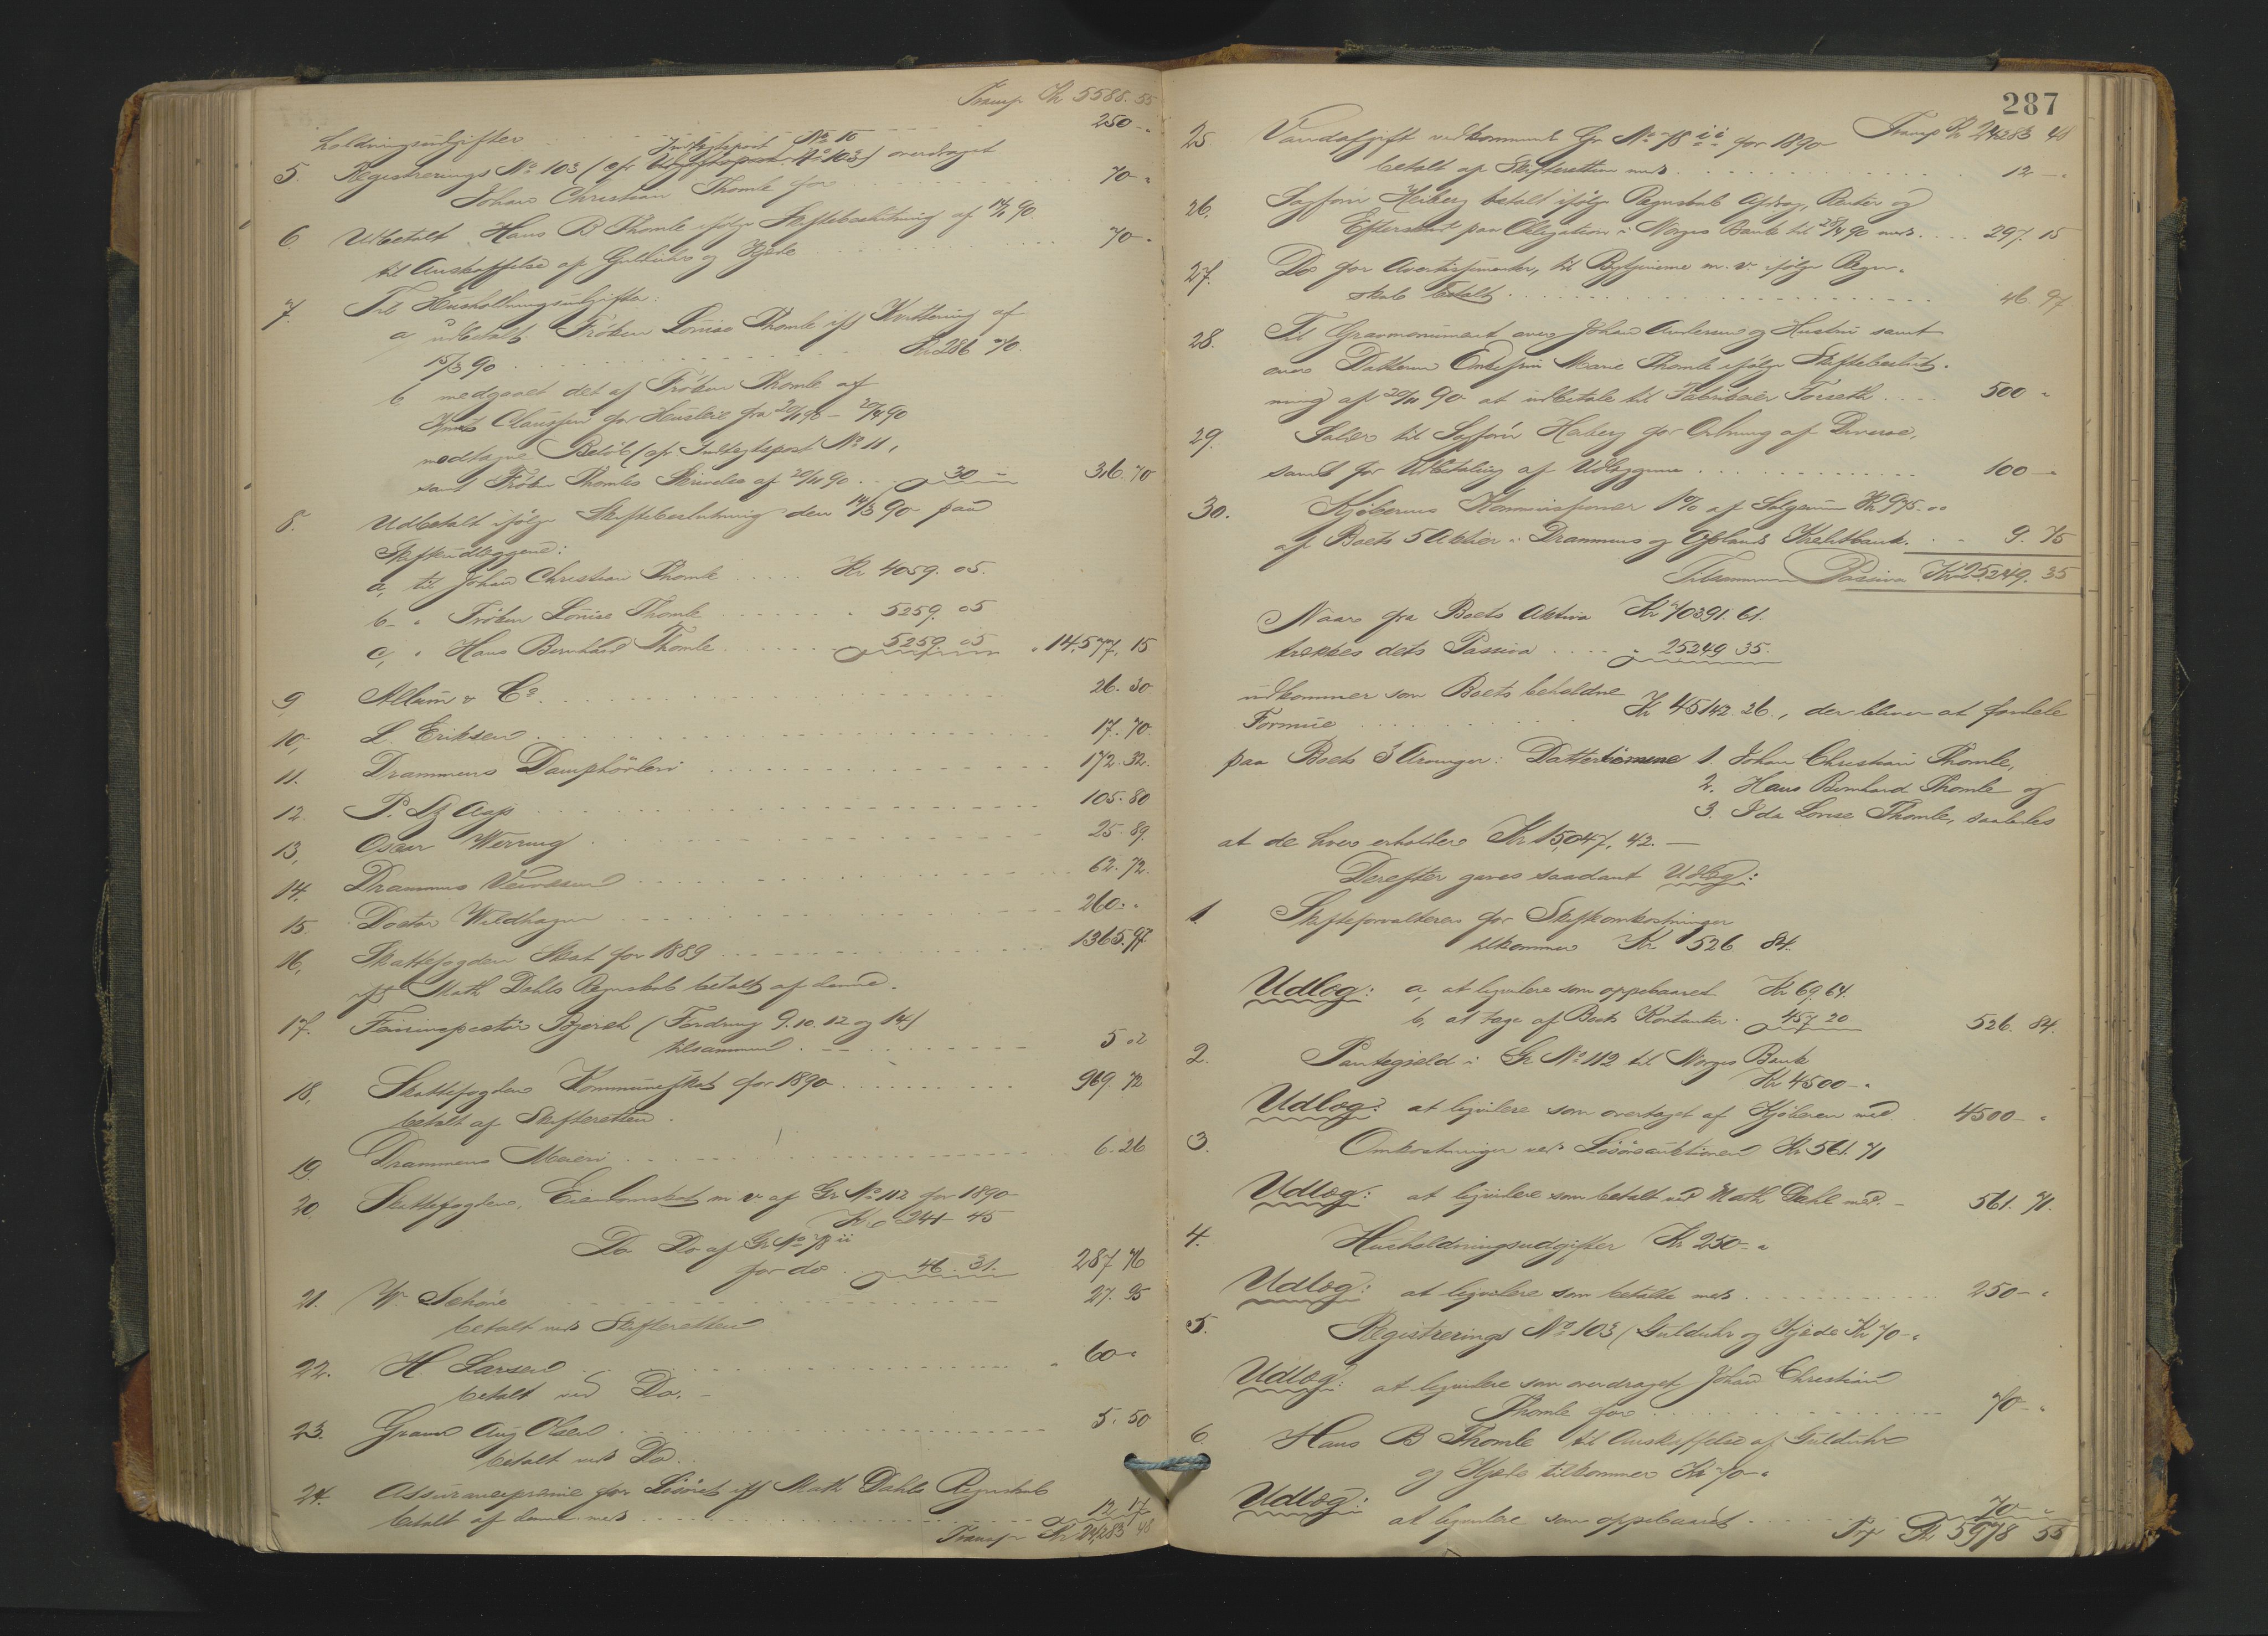 Transp Kr 5588. 55
holdningsudgifter 250 - "
Indtægtspost No 10
5. Registrerings No 103 (cfr Udgiftspost No 103) overdraget
Johan Christian Thomle for 70 - "
6. Udbetalt Hans B Thomle ifølge Skiftebeslutning af 14/1 90
til Anskaffelse af Gulduhr og Kjæde 70 - "
7. Til Husholdningsudgifter:
a udbetalt Frøken Louise Thomle iflg Kvittering af
15/3 90 Kr 286 70.
b medgaaet det af Frøken Thomle af
Claussen for Husleie fra 20/1 90 - 20/4 90
modtagne Beløb (cfr Indtægtspost No 11,
samt Frøken Thomles Skrivelse af 20/11 90 30 - 316. 70
8. Udbetalt ifølge Skiftebeslutning den 14/3 90 paa
Skifteudlæggene:
a, til Johan Christian Thomle Kr 4059. 05.
b - " Frøken Louise Thomle " 5259. 05
c, " Hans Bernhard Thomle 5259. 05 " 14,577. 15
9 Allum & Co 26. 30
10, L. Eriksen 17. 70
11. Drammens Dampkøkken 172. 32.
12. P. Lz Aass 105. 80
13, Oscar Werring 25. 89.
14. Drammens 62. 72.
15. Doctor Wildhagen 260. "
16, Skattefogden Skat for 1889 1365. 97.
iflg Math Dahls Regnskab betalt af denne.
17. Bjerch (Fordring 9. 10. 12 og 14)
tilsammen 5 02
18, Skattefogden Kommuneskat for 1890 969. 72
betalt af Skifteretten.
19. Drammens Meieri 6. 26
20. Skattefogden, Eiendomsskat m v af Gr No 112 for 1890
Kr 241 - 45
Do Do af Gr No 78 ii
for do. 46. 31. 287 76
21. W. Schøne 27. 95
betalt ved Skifteretten
22. H. Larsen " 60 - "
betalt ved Do. -
23. Aug Olsen 5. 50
betalt ved Do.
24. Assurancepræmie for Løsøret iflg Math Dahls Regnskab
betalt af denne med 12 17
Transp Kr 24,283 48
287
Transp Kr 24283 48
25 Vandafgift vedkommende Gr No 78 ii for 1890
betalt af Skifteretten med 12 - "
26. Sagfører Heiberg betalt ifølge Regnskab Afdrag, Renter og
paa Obligation i Norges Bank til 28/4 90 med 297. 15
27. Do for Avertissementer, til m. v. ifølge Regn-
skab betalt 46. 97
28. Til Gravmonument over Johan Andersen og Hustru samt
over Datteren Enkefru Marie Thomle ifølge Skiftebeslut-
ning af 20/11 90 at udbetale til Fabrikeier Torseth 500 "
29. Salær til Sagfører Heiberg for Ordning af Diverse,
samt for Udbetaling af Udlæggene 100 - "
30. Kjøberens 1% af Salgssum Kr 975. 00
af Boets 5 Aktier i Drammens og Oplands Kreditbank. 9. 75
Tilsammen Passiva Kr 25249. 35
Naar fra Boets Aktiva Kr 70391. 61.
trækkes dets Passiva " 25249 35.
udkommer som Boets beholdne
Formue Kr 45142. 26., der bliver at fordele
paa Boets 3 Arvinger: 1. Johan Christian Thomle,
2. Hans Bernhard Thomle og
3. Ida Louise Thomle, saaledes
at de hver erholder Kr 15,047. 42. -
Derefter gjøres saadant Udlæg:
1 Skifteforvalteren for Skifteomkostninger
tilkommer Kr 526 84.
Udlæg: a, at liqvidere som oppebaaret Kr 69. 64.
b, at tage af Boets Kontanter 457 20 526. 84.
2. Pantegjeld i Gr No 112 til Norges Bank
Kr 4500 - "
Udlæg: at liqvidere som overtaget af Kjøberen med 4500 - "
3. Omkostninger ved Løsøreauktionen Kr 561. 71
Udlæg: at liqvidere som betalt ved Math Dahl med - 561. 71.
4. Husholdningsudgifter Kr 250 - "
Udlæg: at liqvidere som betalte med 250 - "
5. Registrerings No 103 (Gulduhr og Kjæde Kr 70 - "
Udlæg: at liqvidere som overdraget Johan Christian
Thomle for 70 - "
6. Hans B Thomle til Anskaffelse af Gulduhr
og Kjæde tilkommer Kr 70 - "
Udlæg: at liqvidere som oppebaaret 70 - "
Trp Kr 5978 55